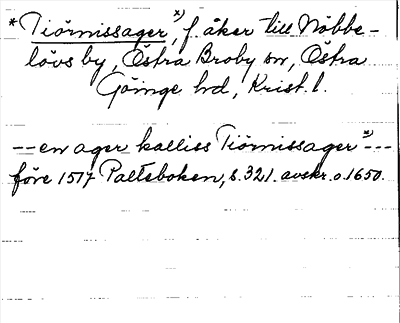 *Tiörnissager*), f. åker till Nöbbe-
lövs by, Östra Broby sn, Östra
Göinge hd, Krist. l.
--en ager kalliss Tiörnissager*)---
före 1517 Palteboken, s. 321. avskr. o. 1650.